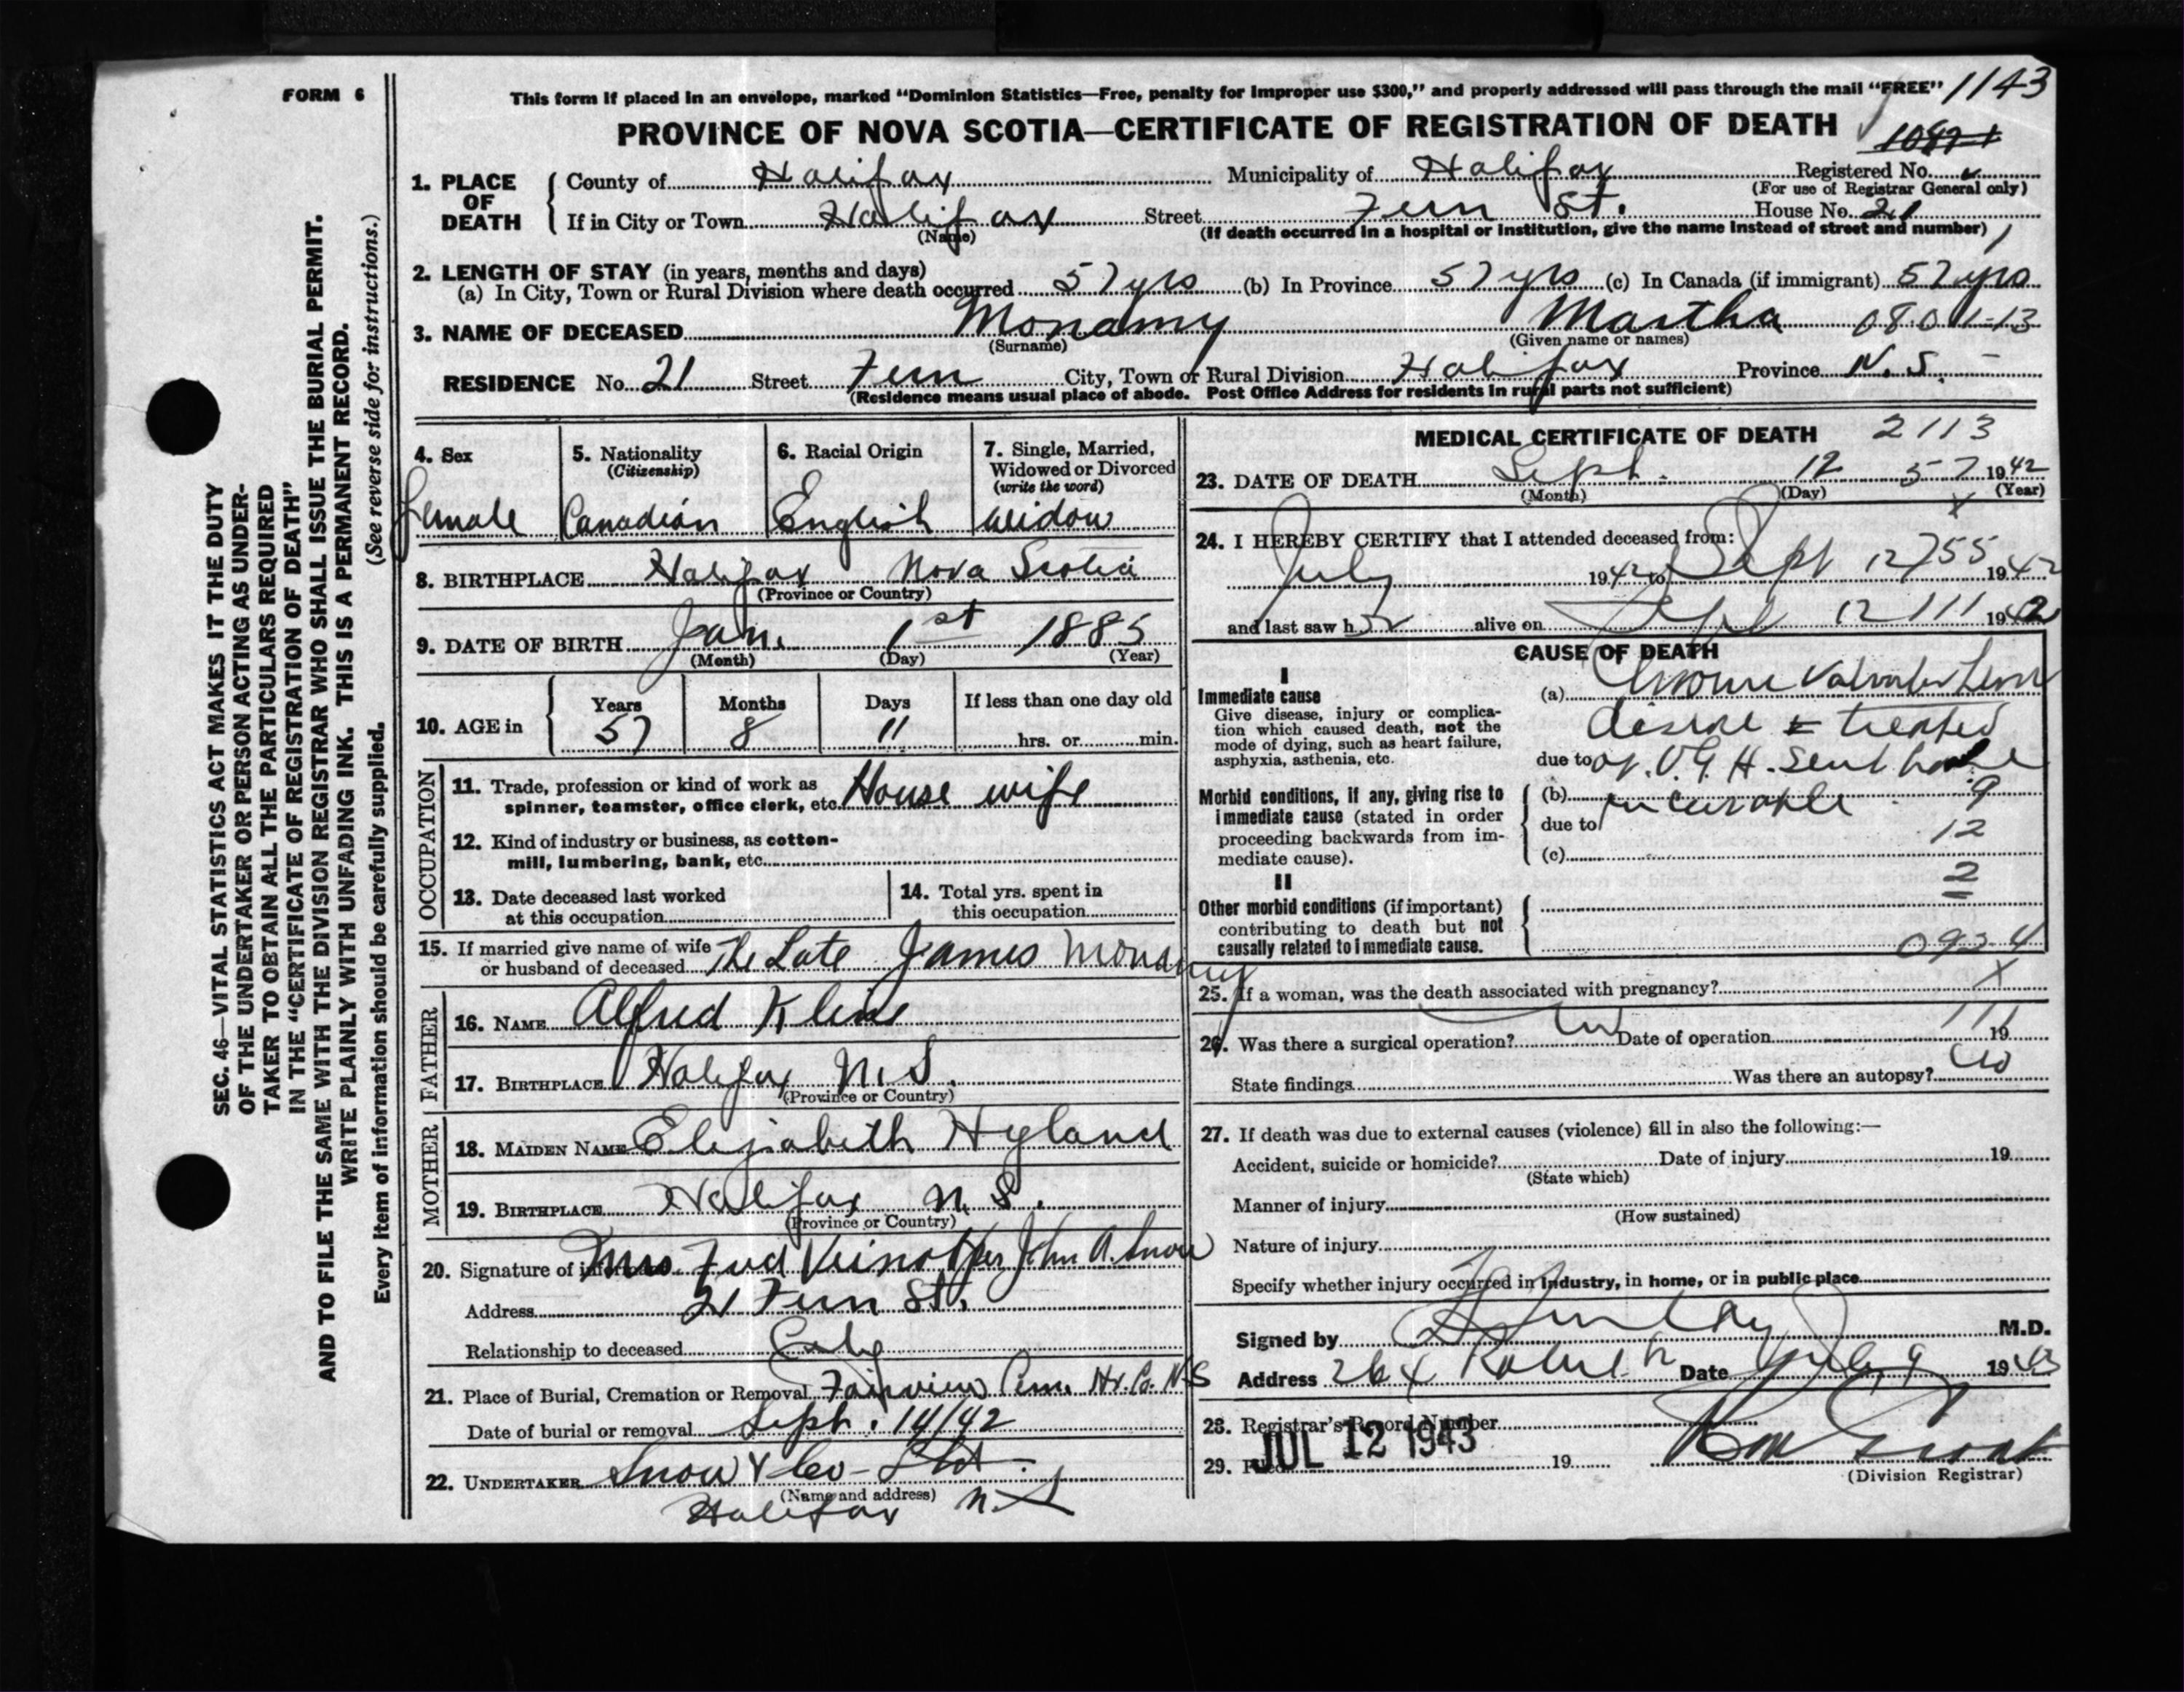 FORM 6
This form if placed in an envelope, marked "Dominion Statistics—Free, penalty for improper use $300," and properly addressed will pass through the mail "FREE" 1143
PROVINCE OF NOVA SCOTIA—CERTIFICATE OF REGISTRATION OF DEATH
1. PLACE OF DEATH
County of Halifax Municipality of Halifax Registered No.
(For use of Registrar General only)
If in City or Town Halifax Street Fern St. House No. 21
(Name) (If death occurred in a hospital or institution, give the name instead of street and number)
2. LENGTH OF STAY (in years, months and days)
(a) In City, Town or Rural Division where death occurred 57 yrs (b) In Province 57 yrs (c) In Canada (if immigrant) 57 yrs
3. NAME OF DECEASED Monamy Martha 0801-13
(Surname) (Given name or names)
RESIDENCE No. 21 Street Fern City, Town or Rural Division Halifax Province N.S. –
(Residence means usual place of abode. Post Office Address for residents in rural parts not sufficient)
SEC. 46—VITAL STATISTICS ACT MAKES IT THE DUTY
OF THE UNDERTAKER OR PERSON ACTING AS UNDER-
TAKER TO OBTAIN ALL THE PARTICULARS REQUIRED
IN THE "CERTIFICATE OF REGISTRATION OF DEATH"
AND TO FILE THE SAME WITH THE DIVISION REGISTRAR WHO SHALL ISSUE THE BURIAL PERMIT.
WRITE PLAINLY WITH UNFADING INK. THIS IS A PERMANENT RECORD.
(See reverse side for instructions.)
Every item of information should be carefully supplied.
4. Sex
Female
5. Nationality
(Citizenship)
Canadian
6. Racial Origin
English
7. Single, Married,
Widowed or Divorced
(write the word)
Widow
8. BIRTHPLACE Halifax Nova Scotia
(Province or Country)
9. DATE OF BIRTH Jan. 1st 1885
(Month) (Day) (Year)
10. AGE in
Years Months Days If less than one day old
57 8 11 hrs. or min.
OCCUPATION
11. Trade, profession or kind of work as
spinner, teamster, office clerk, etc. House wife
12. Kind of industry or business, as cotton-
mill, lumbering, bank, etc.
13. Date deceased last worked
at this occupation
14. Total yrs. spent in
this occupation
15. If married give name of wife
or husband of deceased The Late James Monamy
FATHER
16. NAME Alfred
17. BIRTHPLACE Halifax N.S.
(Province or Country)
MOTHER
18. MAIDEN NAME Elizabeth Hyland
19. BIRTHPLACE Halifax N.S.
(Province or Country)
20. Signature of informant Mrs Per John A. Snow
Address 21 Fern St.
Relationship to deceased
21. Place of Burial, Cremation or Removal Fairview Cem. Hx. Co. N.S
Date of burial or removal Sept. 14/42
22. UNDERTAKER Snow & Co – Ltd.
(Name and address)
Halifax N.S
MEDICAL CERTIFICATE OF DEATH 2113
23. DATE OF DEATH Sept. 12 57 1942
(Month) (Day) (Year)
X
24. I HEREBY CERTIFY that I attended deceased from:
July 1942 to Sept 12 755 1942
and last saw h alive on Sept 12 111 1942
CAUSE OF DEATH
I
Immediate cause
Give disease, injury or complica-
tion which caused death, not the
mode of dying, such as heart failure,
asphyxia, asthenia, etc.
(a) Chronic Valvular
treated
due to V.G.H. Sent home
Morbid conditions, if any, giving rise to
immediate cause (stated in order
proceeding backwards from im-
mediate cause).
(b) incurable 9
due to 12
(c)
II 2
Other morbid conditions (if important)
contributing to death but not
causally related to immediate cause. 092-4
25. If a woman, was the death associated with pregnancy? X
26. Was there a surgical operation? No Date of operation 111 19
State findings Was there an autopsy? No
27. If death was due to external causes (violence) fill in also the following:—
Accident, suicide or homicide? Date of injury 19
(State which)
Manner of injury
(How sustained)
Nature of injury
Specify whether injury occurred in industry, in home, or in public place
Signed by M.D.
Address 264 Date July 9 1943
28. Registrar's Record Number
JUL 12 1943
29. Filed 19
(Division Registrar)